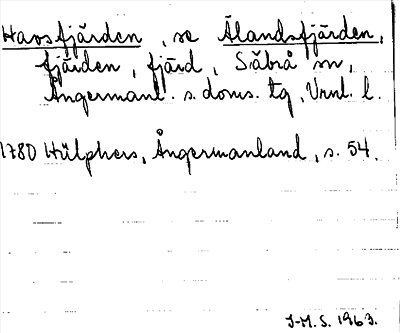 Havsfjärden, se Ålandsfjärden,
fjärden, fjärd, Säbrå sn,
Ångermanl. s. doms. tg, Vrnl. l.
1780 Hülphers, Ångermanland, s. 54.
J-M.S. 1963.